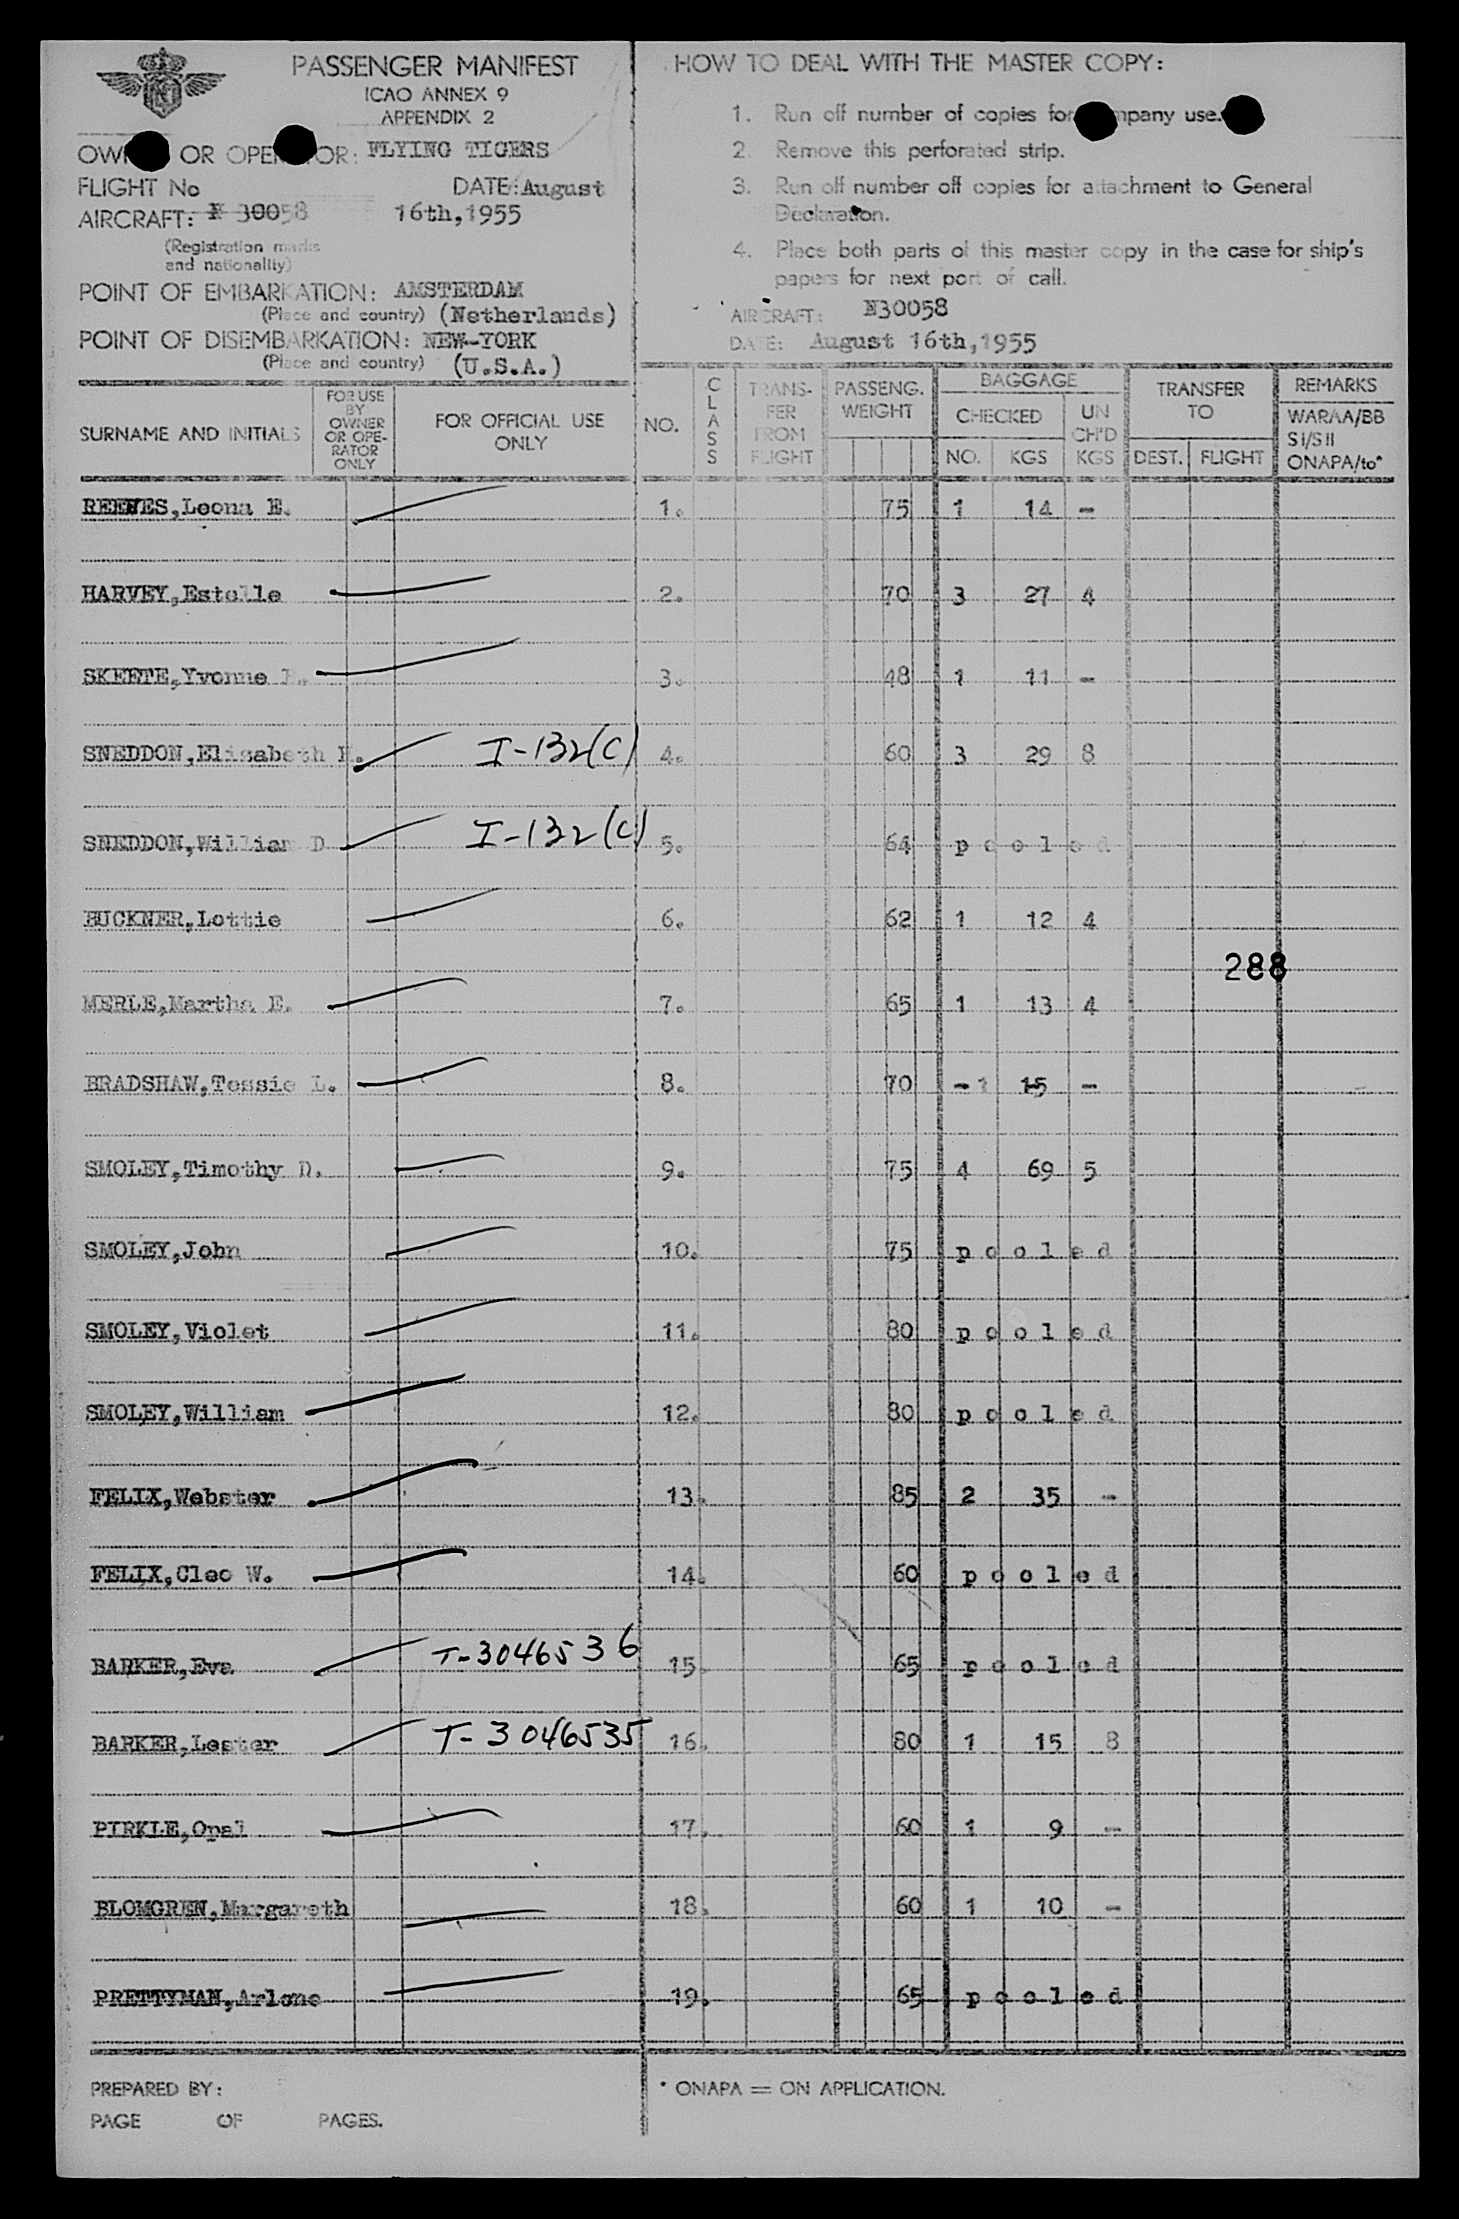 PASSENGER MANIFEST
ICAO ANNEX 9
APPENDIX 2
OR OPER OR: FLYING TIGERS
FLIGHT No DATE: August
AIRCRAFT: N 30058 16th,1955
(Registration marks
and nationality)
POINT OF EMBARKATION: AMSTERDAM
(Place and country) (Netherlands)
POINT OF DISEMBARKATION: NEW-YORK
(Place and country) (U.S.A.)
HOW TO DEAL WITH THE MASTER COPY:
1. Run off number of copies for company use.
2. Remove this perforated strip.
3. Run off number off copies for attachment to General
Declaration.
4. Place both parts of this master copy in the case for ship's
papers for next port of call.
AIRCRAFT: N30058
DATE: August 16th,1955
SURNAME AND INITIALS
FOR USE
BY
OWNER
OR OPE-
RATOR
ONLY
FOR OFFICIAL USE
ONLY
NO.
CLASS
TRANS-
FER
FROM
FLIGHT
PASSENG.
WEIGHT
BAGGAGE
CHECKED
NO. KGS
UN
CH'D
KGS
TRANSFER
TO
DEST. FLIGHT
REMARKS
WARAA/BB
SI/SII
ONAPA/to*
REEVES,Leona E. 1. 75 1 14 -
HARVEY,Estelle 2. 70 3 27 4
SKEETE,Yvonne 3. 48 1 11 -
SNEDDON,Elisabeth I-132(C) 4. 60 3 29 8
SNEDDON,William D I-132(C) 5. 64 pooled
BUCKNER,Lottie 6. 62 1 12 4
288
MERLE,Martha E. 7. 65 1 13 4
BRADSHAW,Tessie L. 8. 70 -1 15 -
SMOLEY,Timothy D. 9. 75 4 69 5
SMOLEY,John 10. 75 pooled
SMOLEY,Violet 11. 80 pooled
SMOLEY,William 12. 80 pooled
FELIX,Webster 13. 85 2 35 -
FELIX,Cleo W. 14. 60 pooled
BARKER,Eva T-3046536 15. 65 pooled
BARKER,Lester T-3046535 16. 80 1 15 8
PIRKLE,Opal 17. 60 1 9 -
BLOMGREN,Margareth 18. 60 1 10 -
PRETTYMAN,Arlene 19. 65 pooled
PREPARED BY:
PAGE OF PAGES.
* ONAPA = ON APPLICATION.